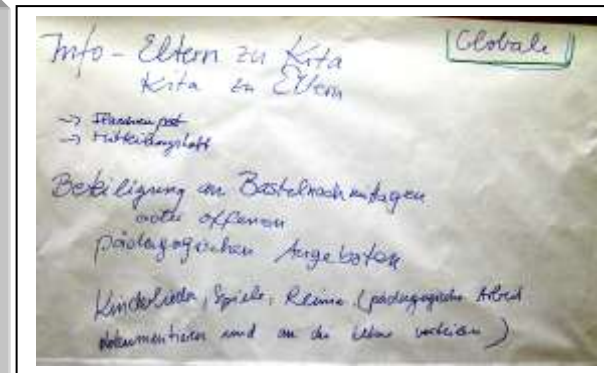 Info - Eltern zu Kita
Globale
Kita zu Eltern
-> Flaschenpost
-> Mitteilungsheft
Beteiligung an Bastelnachmittagen
oder offenen
pädagogischen Angeboten
Kinderlieder, Spiele, Reime (pädagogische Arbeit
dokumentieren und an die Eltern verteilen)